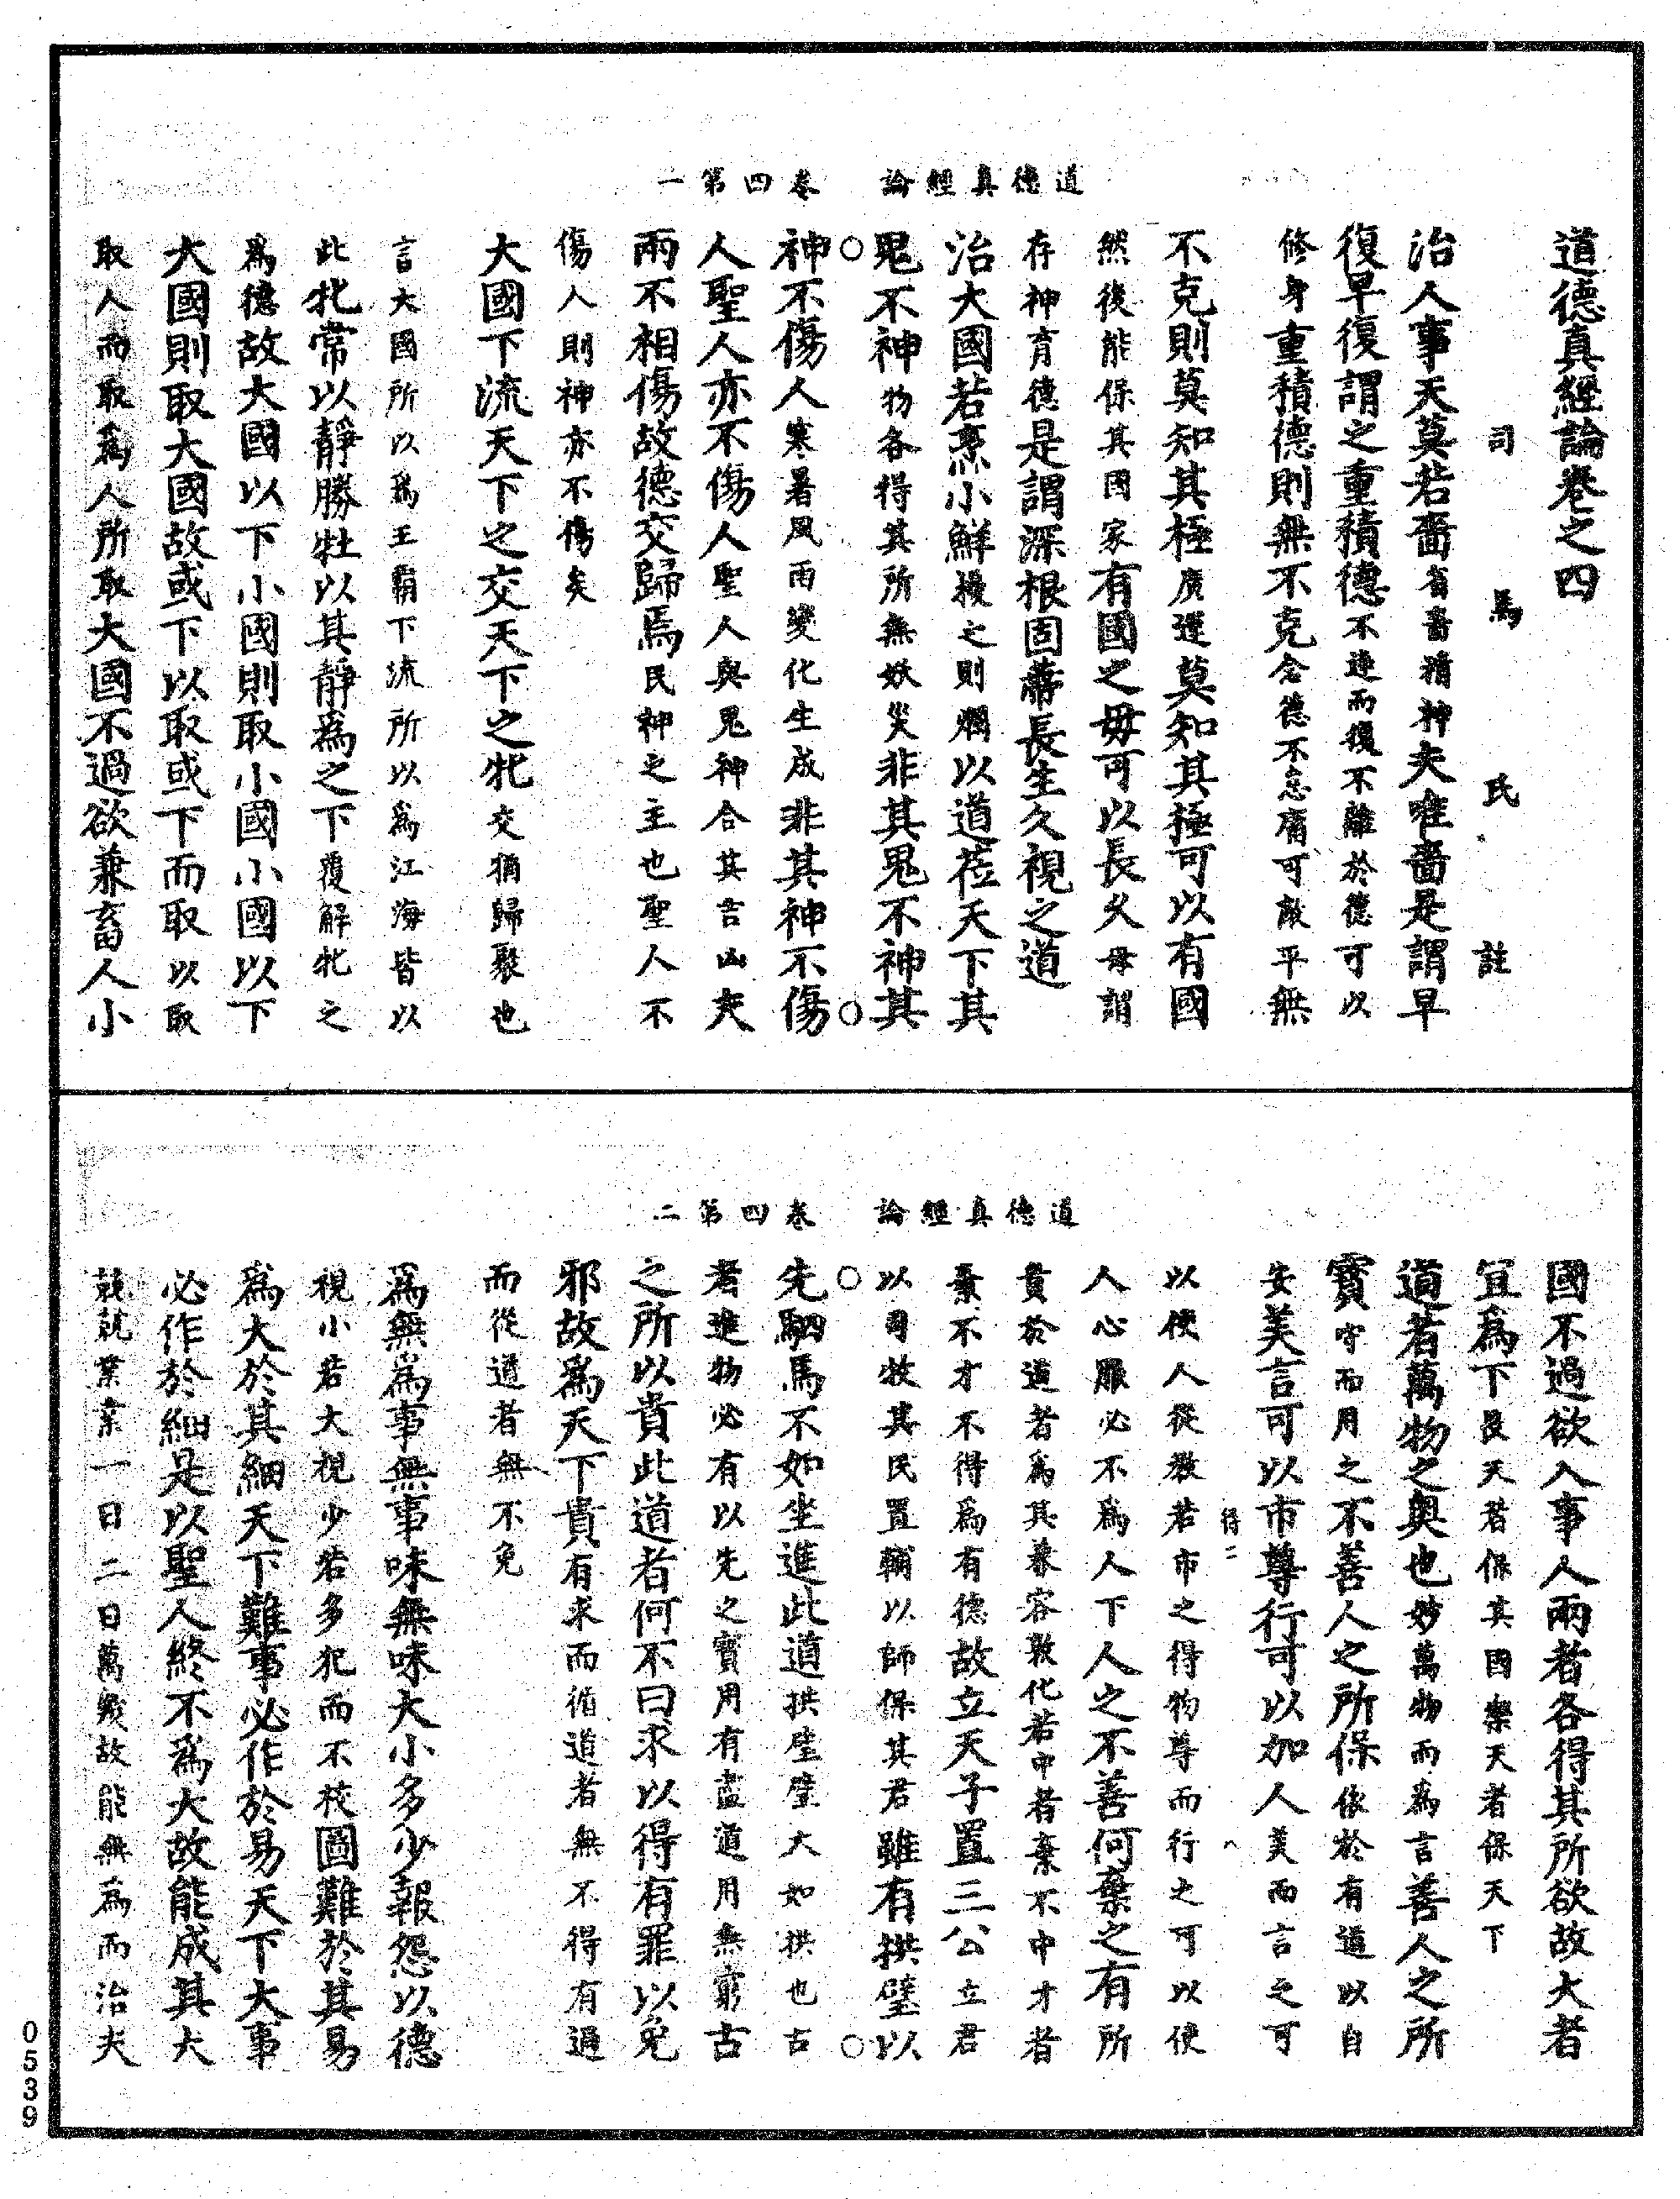 道德真經論 卷四第一
道德真經論卷之四
司馬氏註
治人事天莫若嗇省嗇精神夫唯嗇是謂早
復早復謂之重積德不遠而復不離於德可以
修身重積德則無不克念德不怠庸可敵乎無
不克則莫知其極廣運莫知其極可以有國
然後能保其國家有國之母可以長久母謂
存神育德是謂深根固蔕長生久視之道
治大國若烹小鮮擾之則爛以道莅天下其
鬼不神物各得其所無妖災非其鬼不神其
神不傷人寒暑風雨變化生成非其神不傷
人聖人亦不傷人聖人與鬼神合其吉凶夫
兩不相傷故德交歸焉民神之主也聖人不
傷人則神亦不傷矣
大國下流天下之交天下之牝交猶歸聚也
言大國所以為王霸下流所以為江海皆以
此牝常以靜勝牡以其靜為之下覆解牝之
為德故大國以下小國則取小國小國以下
大國則取大國故或下以取或下而取以取
取人而取為人所取大國不過欲兼畜人小
道德真經論 卷四第二
國不過欲入事人兩者各得其所欲故大者
宜為下畏天者保其國樂天者保天下
道者萬物之奧也妙萬物而為言善人之所
寶守而用之不善人之所保依於有道以自
安美言可以市尊行可以加人美而言之可
得二
以使人從教若市之得物尊而行之可以使
人心服必不為人下人之不善何棄之有所
貴於道者為其兼容敷化若中者棄不中才者
棄不才不得為有德故立天子置三公立君
以司牧其民置輔以師保其君雖有拱璧以
先駟馬不如坐進此道拱璧璧大如拱也古
者進物必有以先之寶用有盡道用無窮古
之所以貴此道者何不曰求以得有罪以免
邪故為天下貴有求而循道者無不得有過
而從道者無不免
為無為事無事味無味大小多少報怨以德
視小若大視少若多犯而不校圖難於其易
為大於其細天下難事必作於易天下大事
必作於細是以聖人終不為大故能成其大
兢兢業業一日二日萬幾故能無為而治夫
0539